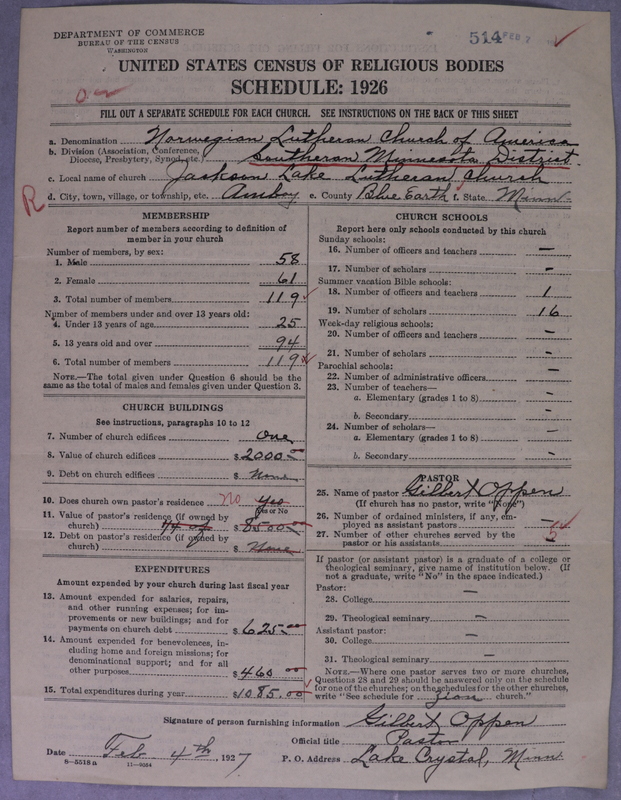 DEPARTMENT OF COMMERCE
BUREAU OF THE CENSUS
WASHINGTON
514 FEB 7
UNITED STATES CENSUS OF RELIGIOUS BODIES
SCHEDULE: 1926
FILL OUT A SEPARATE SCHEDULE FOR EACH CHURCH. SEE INSTRUCTIONS ON THE BACK OF THIS SHEET
a. Denomination Norwegian Lutheran Church of America
b. Division (Association, Conference, Diocese, Presbytery, Synod, etc.) Southeran Minnesota District
c. Local name of church Jackson Lake Lutheran Church
d. City, town, village, or township, etc. Amboy e. County Blue Earth f. State Minn.
R
MEMBERSHIP
Report number of members according to definition of
member in your church
Number of members, by sex:
1. Male 58
2. Female 61
3. Total number of members 119
Number of members under and over 13 years old:
4. Under 13 years of age 25
5. 13 years old and over 94
6. Total number of members 119
NOTE.—The total given under Question 6 should be the
same as the total of males and females given under Question 3.
CHURCH BUILDINGS
See instructions, paragraphs 10 to 12
7. Number of church edifices One
8. Value of church edifices $ 2000.00
9. Debt on church edifices $ None
10. Does church own pastor's residence no Yes
Yes or No
11. Value of pastor's residence (if owned by
church) $ 8500.00
12. Debt on pastor's residence (if owned by
church) $ None
EXPENDITURES
Amount expended by your church during last fiscal year
13. Amount expended for salaries, repairs,
and other running expenses; for im-
provements or new buildings; and for
payments on church debt $ 625.00
14. Amount expended for benevolences, in-
cluding home and foreign missions; for
denominational support; and for all
other purposes $ 460.00
15. Total expenditures during year $ 1085.00
CHURCH SCHOOLS
Report here only schools conducted by this church
Sunday schools:
16. Number of officers and teachers —
17. Number of scholars -
Summer vacation Bible schools:
18. Number of officers and teachers 1
19. Number of scholars 16
Week-day religious schools:
20. Number of officers and teachers -
21. Number of scholars -
Parochial schools:
22. Number of administrative officers —
23. Number of teachers—
a. Elementary (grades 1 to 8) -
b. Secondary -
24. Number of scholars—
a. Elementary (grades 1 to 8) -
b. Secondary -
PASTOR
25. Name of pastor Gilbert Oppen
(If church has no pastor, write "None")
26. Number of ordained ministers, if any, em-
ployed as assistant pastors —
27. Number of other churches served by the
pastor or his assistants 5
If pastor (or assistant pastor) is a graduate of a college or
theological seminary, give name of institution below. (If
not a graduate, write "No" in the space indicated.)
Pastor:
28. College —
29. Theological seminary —
Assistant pastor:
30. College —
31. Theological seminary —
NOTE.—Where one pastor serves two or more churches,
Questions 28 and 29 should be answered only on the schedule
for one of the churches; on the schedules for the other churches,
write "See schedule for Zion church."
Signature of person furnishing information Gilbert Oppen
Official title Pastor
Date Feb 4th 1927 P. O. Address Lake Crystal, Minn.
8—5518a 11—9354